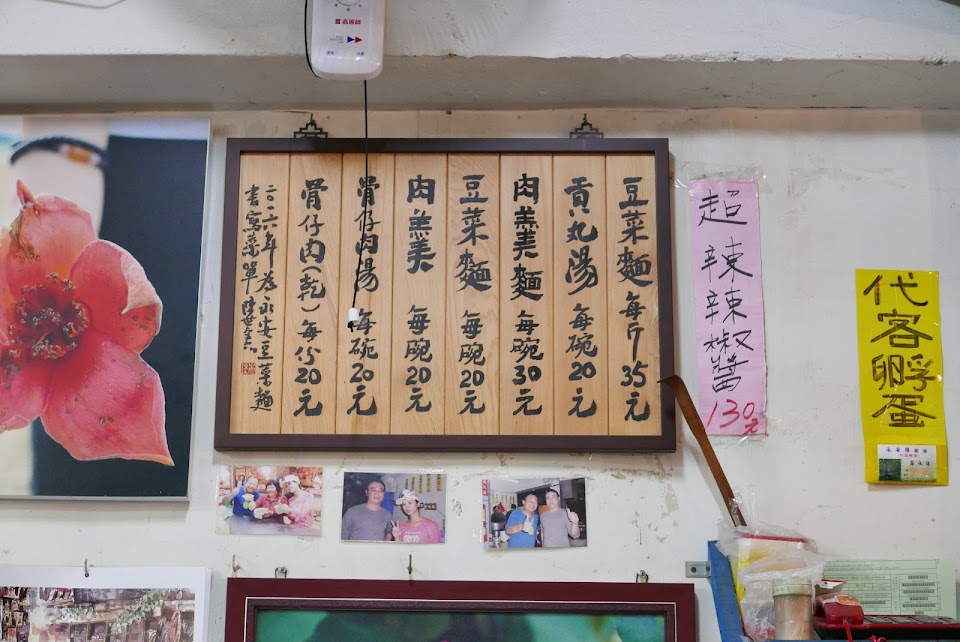 豆菜麵 每斤35元
貢丸湯 每碗20元
肉羹麵 每碗30元
豆菜麵 每碗20元
肉羹 每碗20元
骨仔肉湯 每碗20元
骨仔肉(乾)每份20元
二〇一六年為永安豆菜麵
書寫菜單
超辣辣椒醬
130元
代客孵蛋